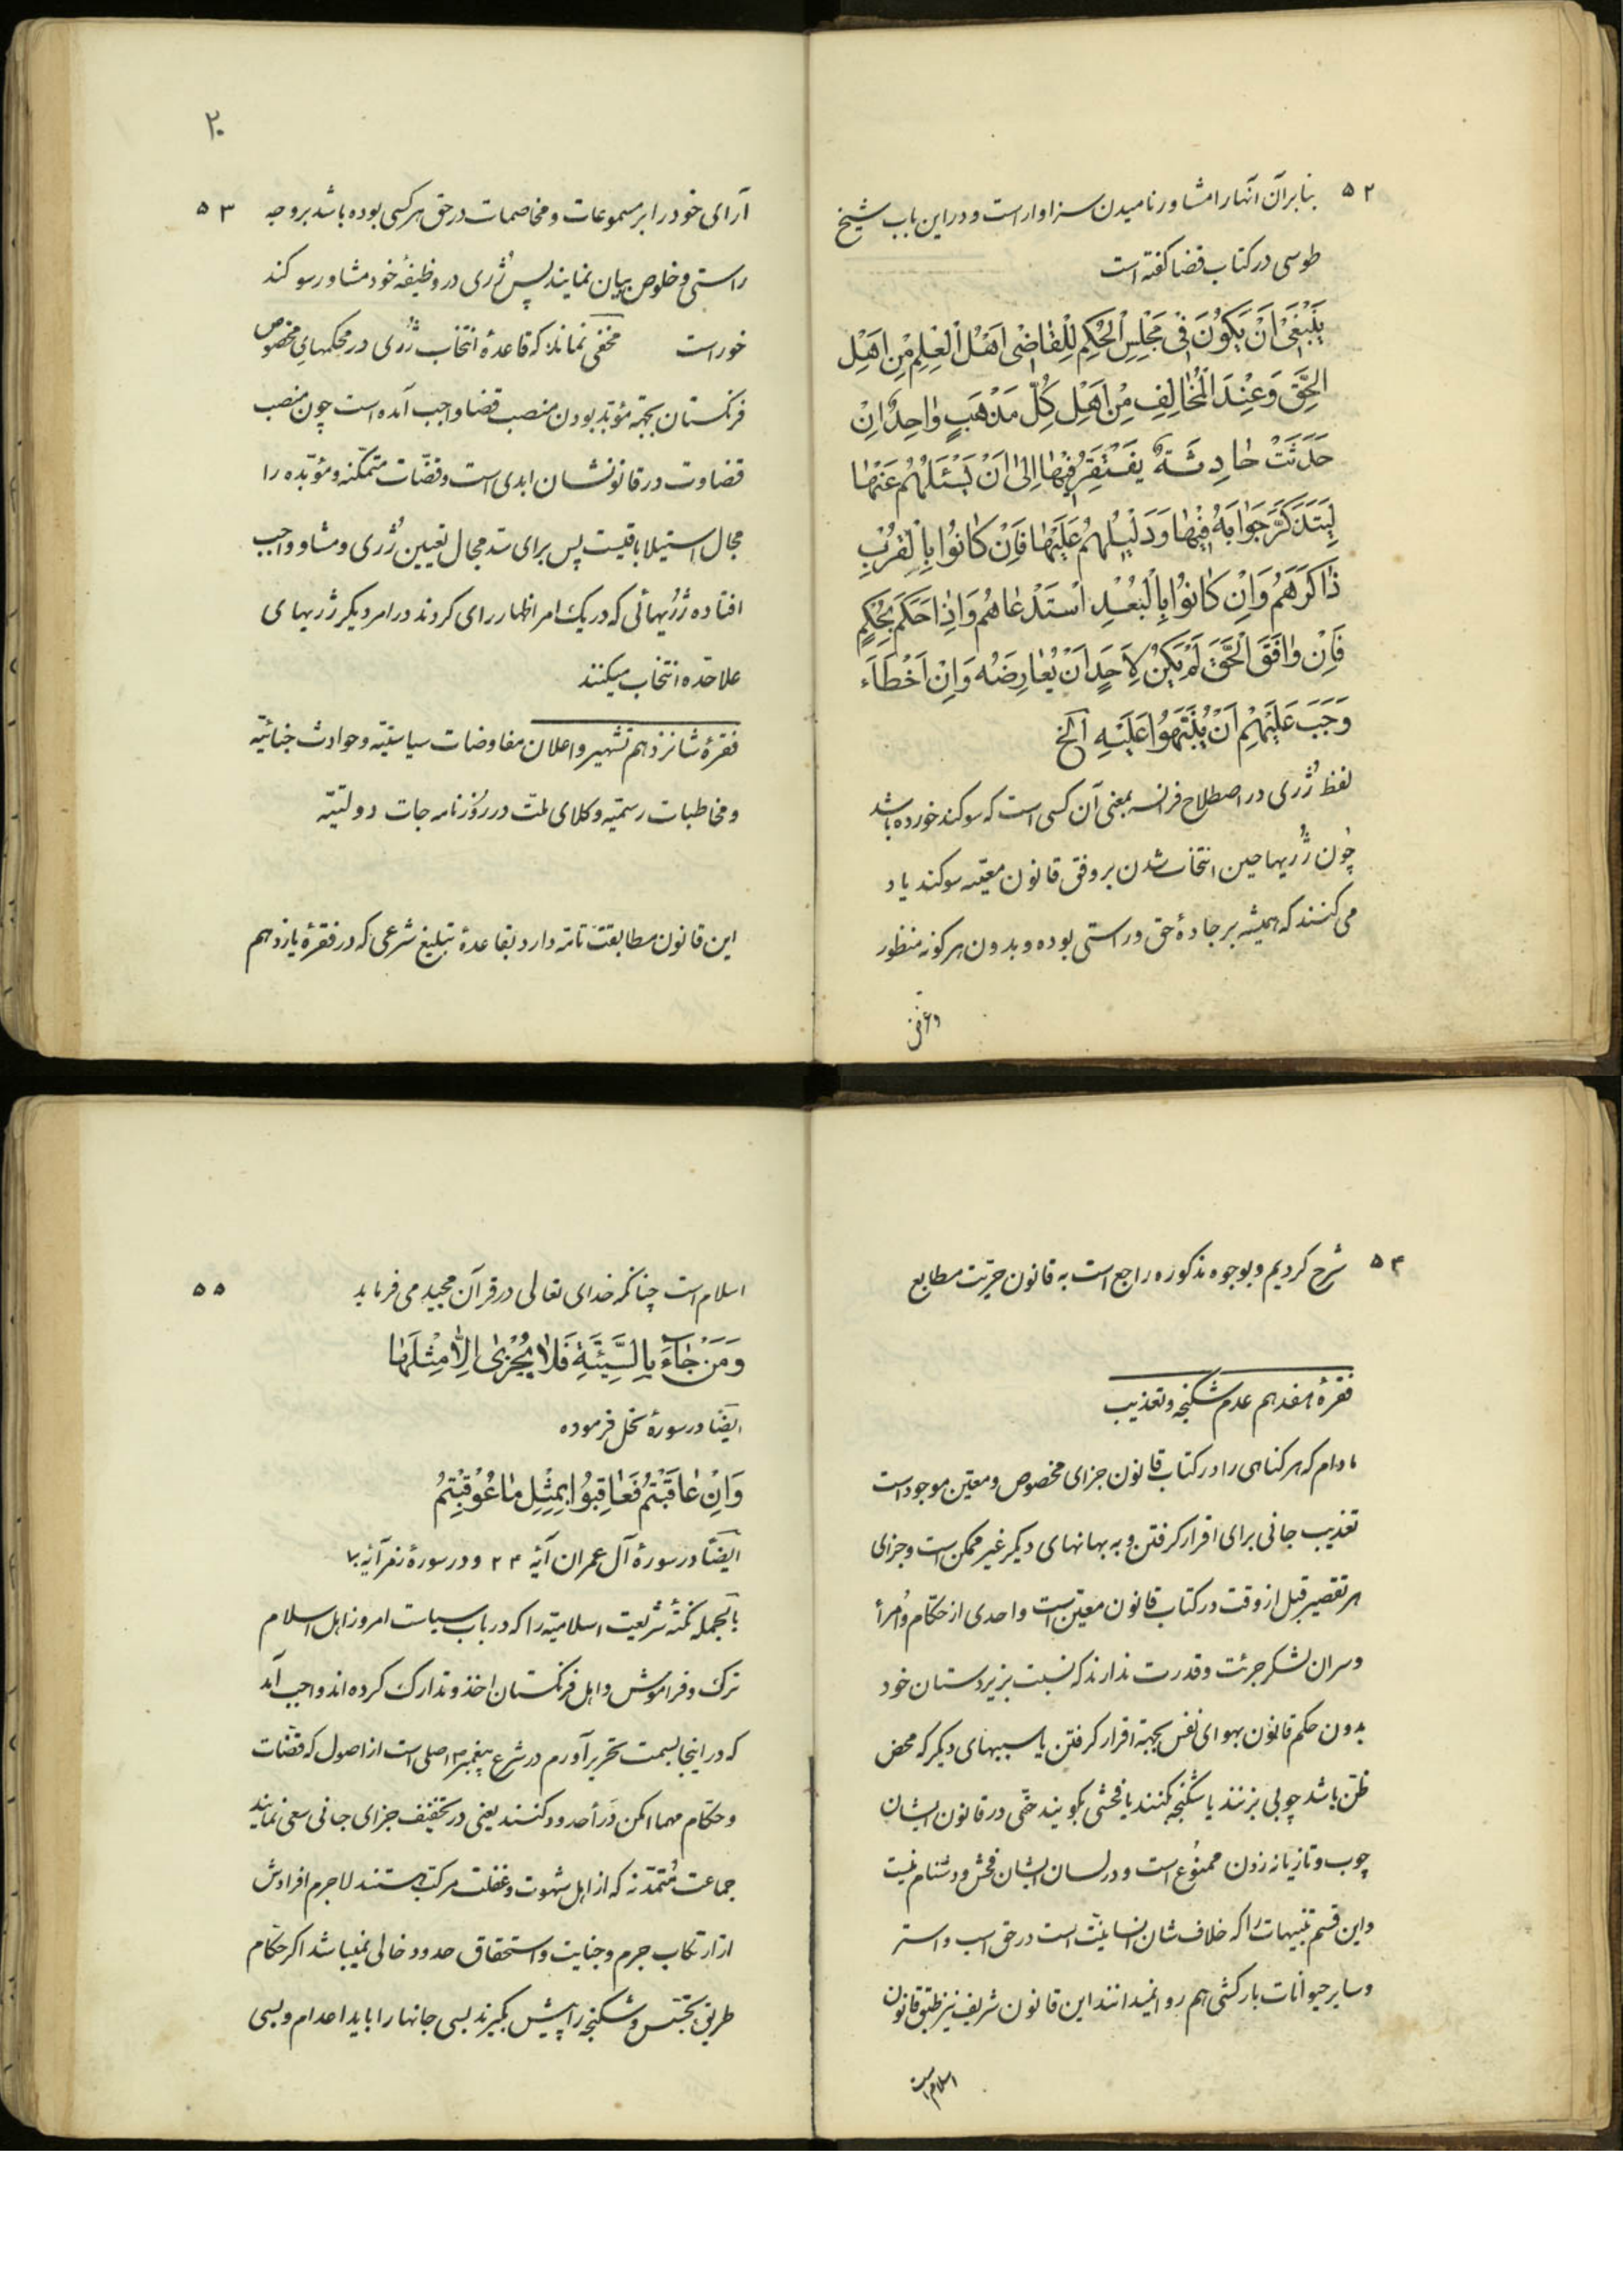 ۵۲
بنابرآن آنها را مشاور نامیدن سزاوار است و در این باب شیخ
طوسی در کتاب قضا کفته است
یَنْبَغی اَنْ یَکُونَ فی مَجْلِسِ الْحُکِمِ لِلْقاضی اَهْلُ الْعِلْمِ مِنْ اَهْلِ
الْحَّقِ وَعِنْدَ الْمُخالِفِ مِنْ اَهْلِ کُلّ مَذْهَبٍ واحِدٌ اِنْ
حَدَثَتْ حادِثَةٌ یَفْتَقِرُ فیها اِلی اَنْ یَسْئَلَهُمْ عَنْها
لِیَتَذَکَّرَ جَوابَهُ فیها وَدَلیلهُمْ عَلَیْها فَاِنْ کانُوا بِالْقُرْبِ
ذاکَرَهُمْ وَاِنْ کانُوا بِالْبُعْدِ اسْتَدْعاهُمْ وَاِذا حَکَمَ بِحُکْمٍ
فَاِنْ وافَقَ الْحَقَّ لَمْ یَکُنْ لِاَحَدٍ اَنْ یُعارِضَهُ وَاِنْ اَخْطَاَء
وَجَبَ عَلَیْهِمْ اَنْ یُنَبِّهُوا عَلَیْهِ الَخ
لفظ ژُری در اصطلاح فرانسه بمعنی آن کسی است که سوکند خورده باشد
چون ژُریها حین انتخاب شدن بر وفق قانون معیّنه سوکند یاد
می کنند که همیشه بر جادۀ حق و راستی بوده و بدون هرکونه منظور
و غرض
۲۰
۵۳
آرای خود را بر مسموعات و مخاصمات در حق هر کسی بوده باشد بر وجه
راستی و خلوص بیان نمایند پس ژُری در وظیفۀ خود مشاور سوکند
خور است مخفی نماند که قاعدۀ انتخاب ژُری در محکمهای مخصوص
فرنکستان بجهة مؤبّد بودن منصب قضا واجب آمده است چون منصب
قضاوت در قانونشان ابدی است و قضّات متمکّنه و مؤبّده را
مجال استیلا باقیست پس برای سدّ مجال تعیین ژُری و مشاور واجب
افتاده ژُریهائی که در یک امر اظهار رای کردند در امر دیکر ژریهای
علاحّده انتخاب میکنند
فقرۀ شانزدهم تشهیر و اعلان مفاوضات سیاسیّه و حوادث جنائیّه
و مخاطبات رسمیّه وکلای ملّت در رُوزنامه جات دولتیّه
این قانون مطابقت تامّه دارد بقاعدۀ تبلیغ شرعی که در فقرۀ یازدهم
۵۴
شرح کردیم و بوجوه مذکوره راجع است به قانون حرّیت مطابع
فقرۀ هفدهم عدم شکنجه و تعذیب
مادام که هر کناهی را در کتاب قانون جزای مخصوص و معیّن موجود است
تعذیب جانی برای اقرار کرفتن و به بهانهای دیکر غیر ممکن است و جزای
هر تقصیر قبل از وقت در کتاب قانون معیّن است و احدی از حکّام و اُمرأ
و سران لشکر جرئت و قدرت ندارند که نسبت بزیردستان خود
بدون حکم قانون بهوای نفس بجهة اقرار کرفتن یا سببهای دیکر که محض
ظنّ باشد چوبی بزنند یا شکنجه بکنند یا فحشی بکویند حتّی در قانون ایشان
چوب و تازیانه زدن ممنوُع است و در لسان ایشان فحش و دشنام نیست
و این قسم تنبیهات را که خلاف شان انسانیّت است در حق اسب و استر
و سایر حیوانات بارکشی هم روا نمیدانند این قانون شریف نیز طبق قانون
اسلام است
۵۵
اسلام است چنانکه خدای تعالی در قرآن مجید می فرماید
وَمَنْ جاءَ بِالسَّیِّئَةِ فَلا یُجْزی اِلاّ مِثْلَها
ایضًا در سورۀ نحل فرموده
وَاِنْ عاقَبْتُمْ فَعاقِبُوا بِمِثْلِ ما عُوقِبْتُمْ
ایضًا در سورۀ آل عمران آیۀ ۲۴ و در سورۀ زمر آیۀ ۷۰
بالجمله نکتۀ شریعت اسلامیّه را که در باب سیاست امروز اهل اسلام
ترک و فراموش و اهل فرنکستان اخذ و تدارک کرده اند واجب آمد
که در اینجا بسمت تحریر آورم در شرع پیغمبر اصلی است از اصول که قضّات
و حکّام مهما امکن دَرأ حدود کنند یعنی در تخفیف جزای جانی سعی نمایند
جماعت مُتمدّنه که از اهل شهوت و غفلت مرکّب هستند لاجرم افرادش
از ارتکاب جرم و جنایت و استحقاق حدود خالی نمیباشد اکر حکّام
طریق تجسّس و شکنجه را پیش بکیرند بسی جانها را باید اعدام و بسی